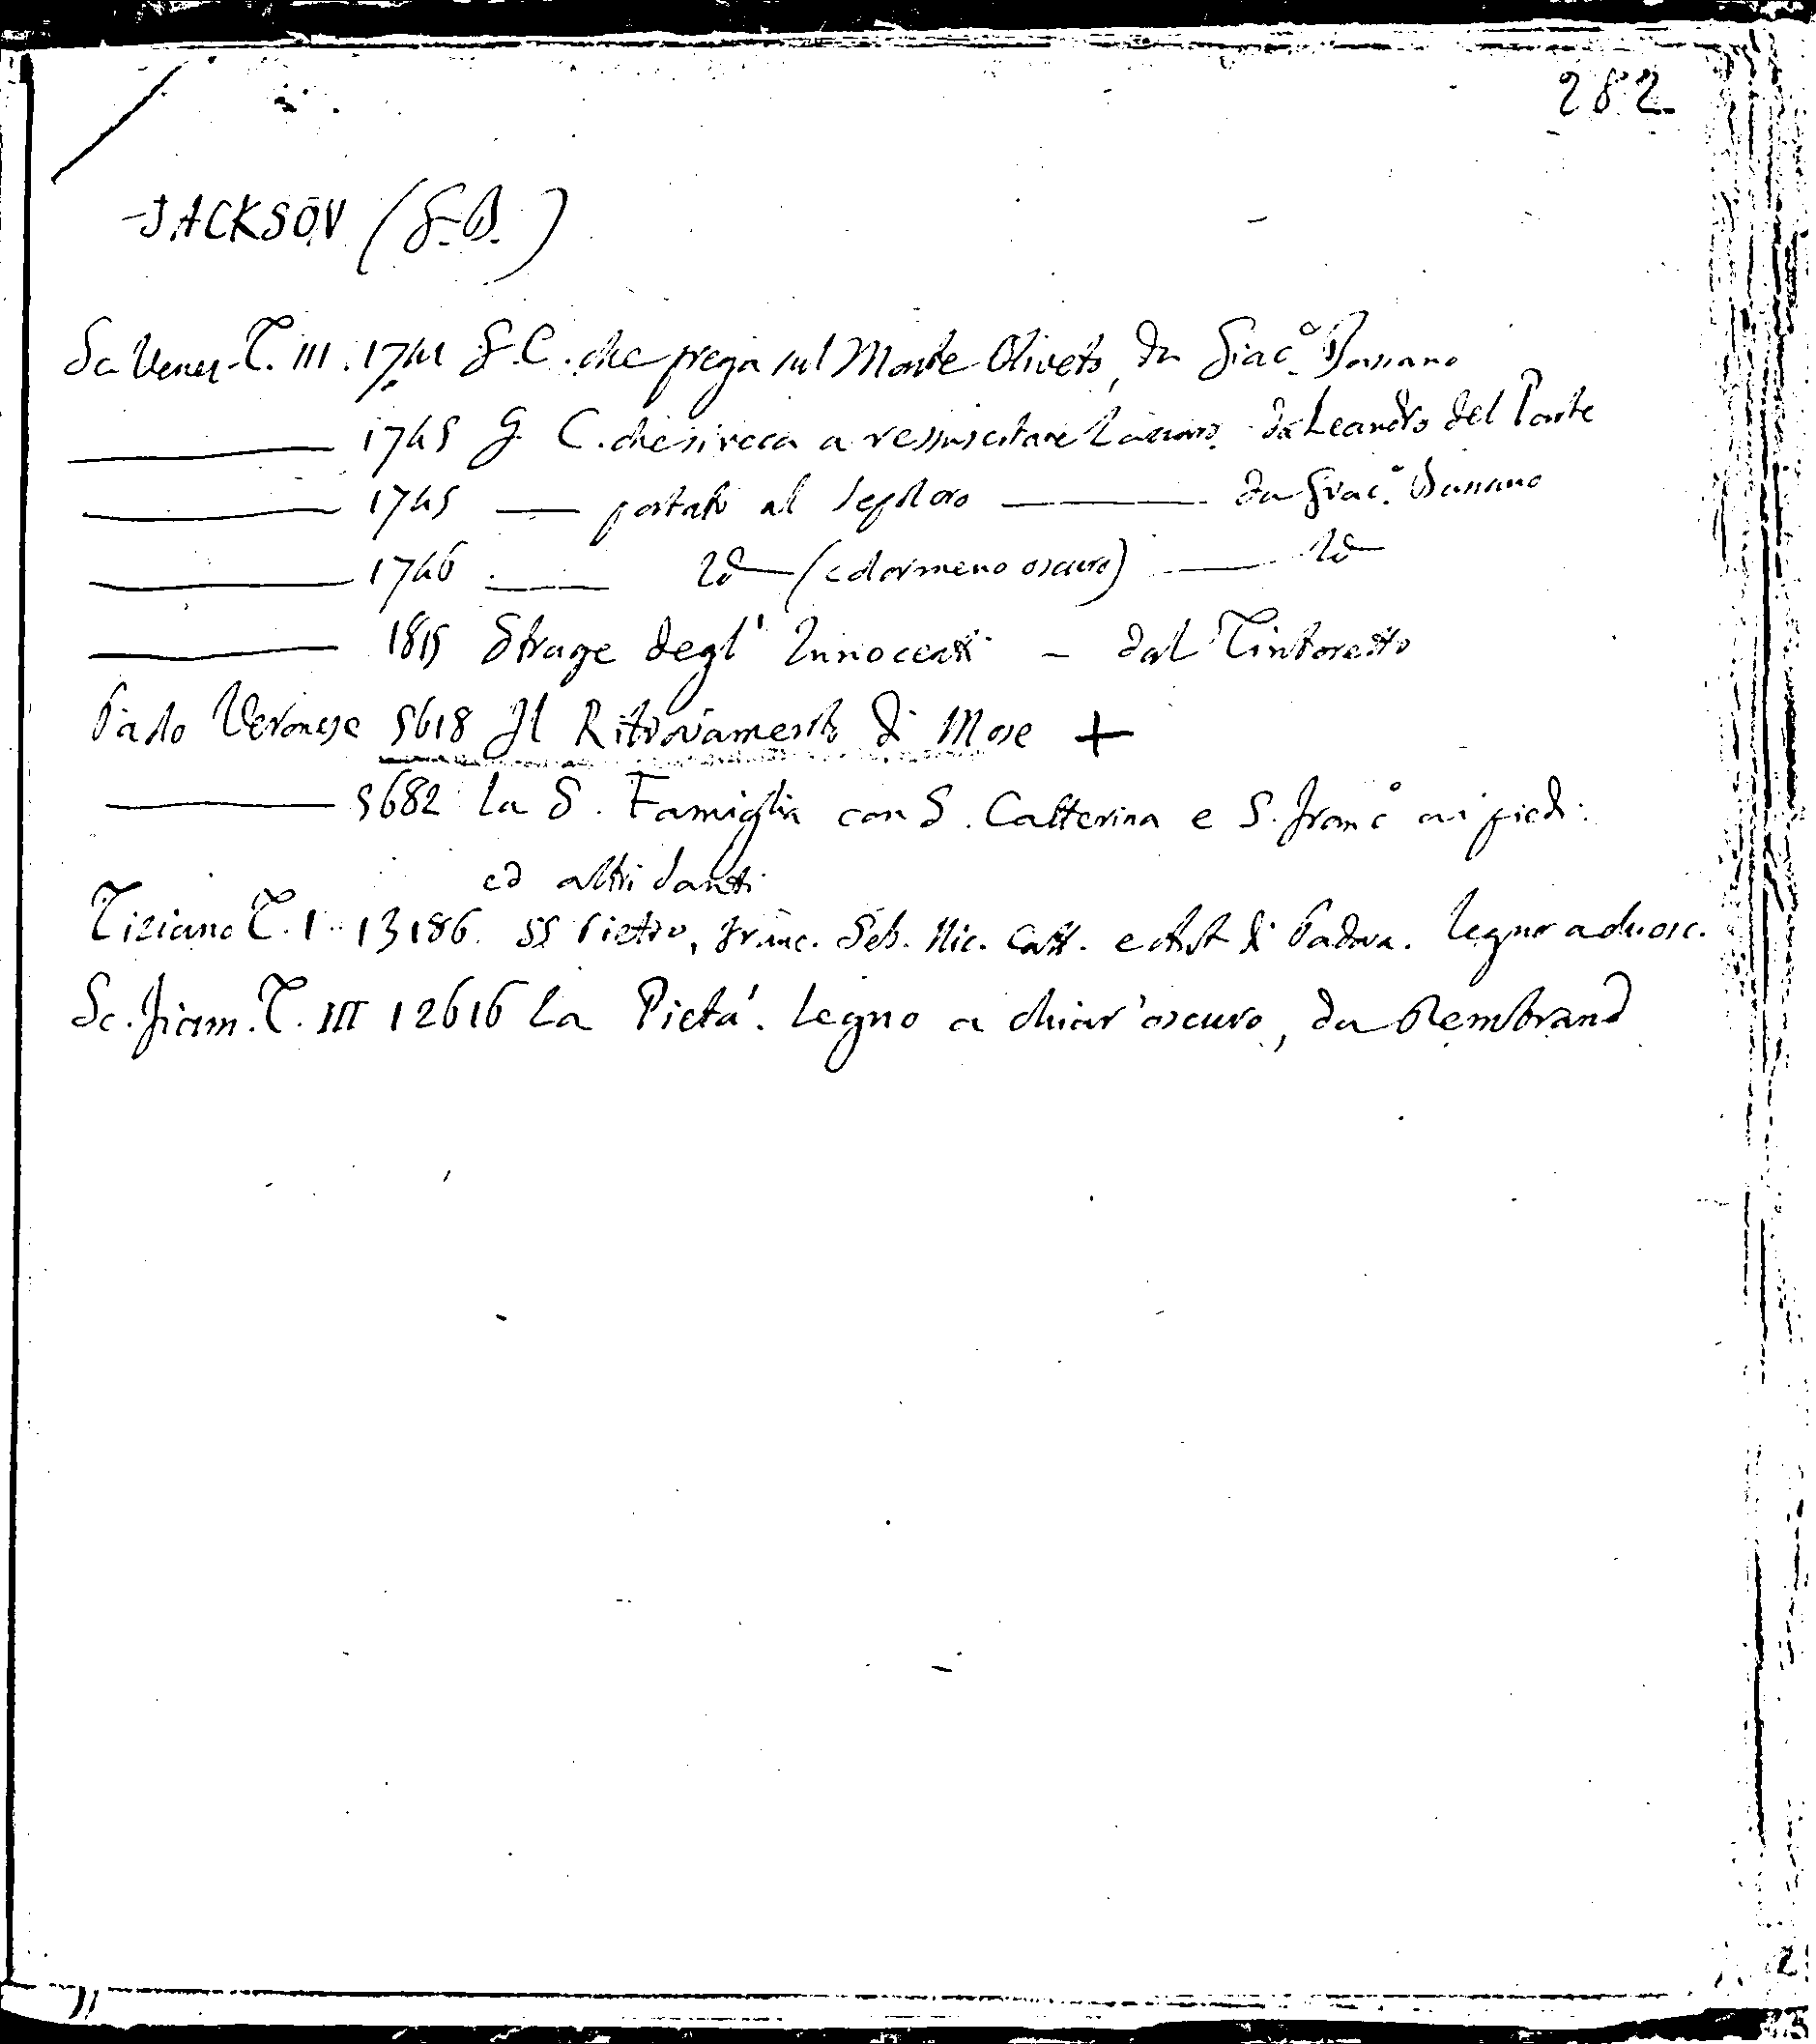 282
JACKSON (G.B.)
Sc Venez. T. III. 1741 G. C. che prega sul Monte Oliveto, da Giac.º Bassano
1745 G. C. che si reca a ressuscitare Lazzaro. da Leandro del Ponte
1745 — portato al sepolcro — da Giac.º Bassano
1746 — Id — (color meno oscuro) — Id
1815 Strage degl' Innocenti - dal Tintoretto
Paolo Veronese 5618 Il Ritrovamento di Mose +
5682 La S. Famiglia con S. Catterina e S. Franc.º ai piedi
ed altri santi
Tiziano T. I. 13186. SS Pietro, Franc. Seb. Nic. Catt. e Ant di Padova. legno a chi. osc.
Sc. fiam. T. III 12616 La Pietà. legno a chiar'oscuro, da Rembrand